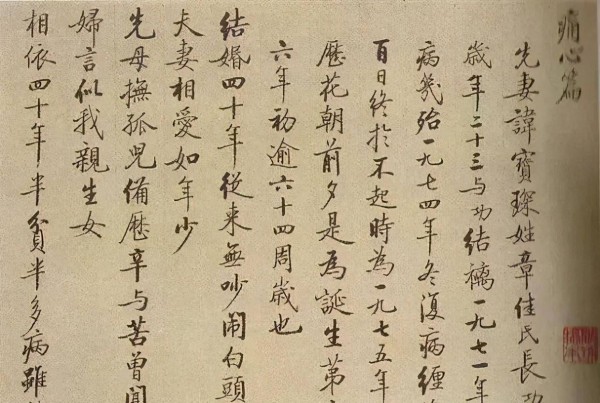 痛心篇
先妻諱寶琛姓章佳氏長功
歲年二十三与功結褵一九七一年
病幾殆一九七四年冬復病纏
百日終於不起時為一九七五年
歷花朝前夕是為誕生苐
六年初逾六十四周歲也
結婚四十年從来無吵鬧白頭
夫妻相愛如年少
先母撫孤兒備歷辛与苦曾聞
婦言似我親生女
相依四十年半貧半多病雖